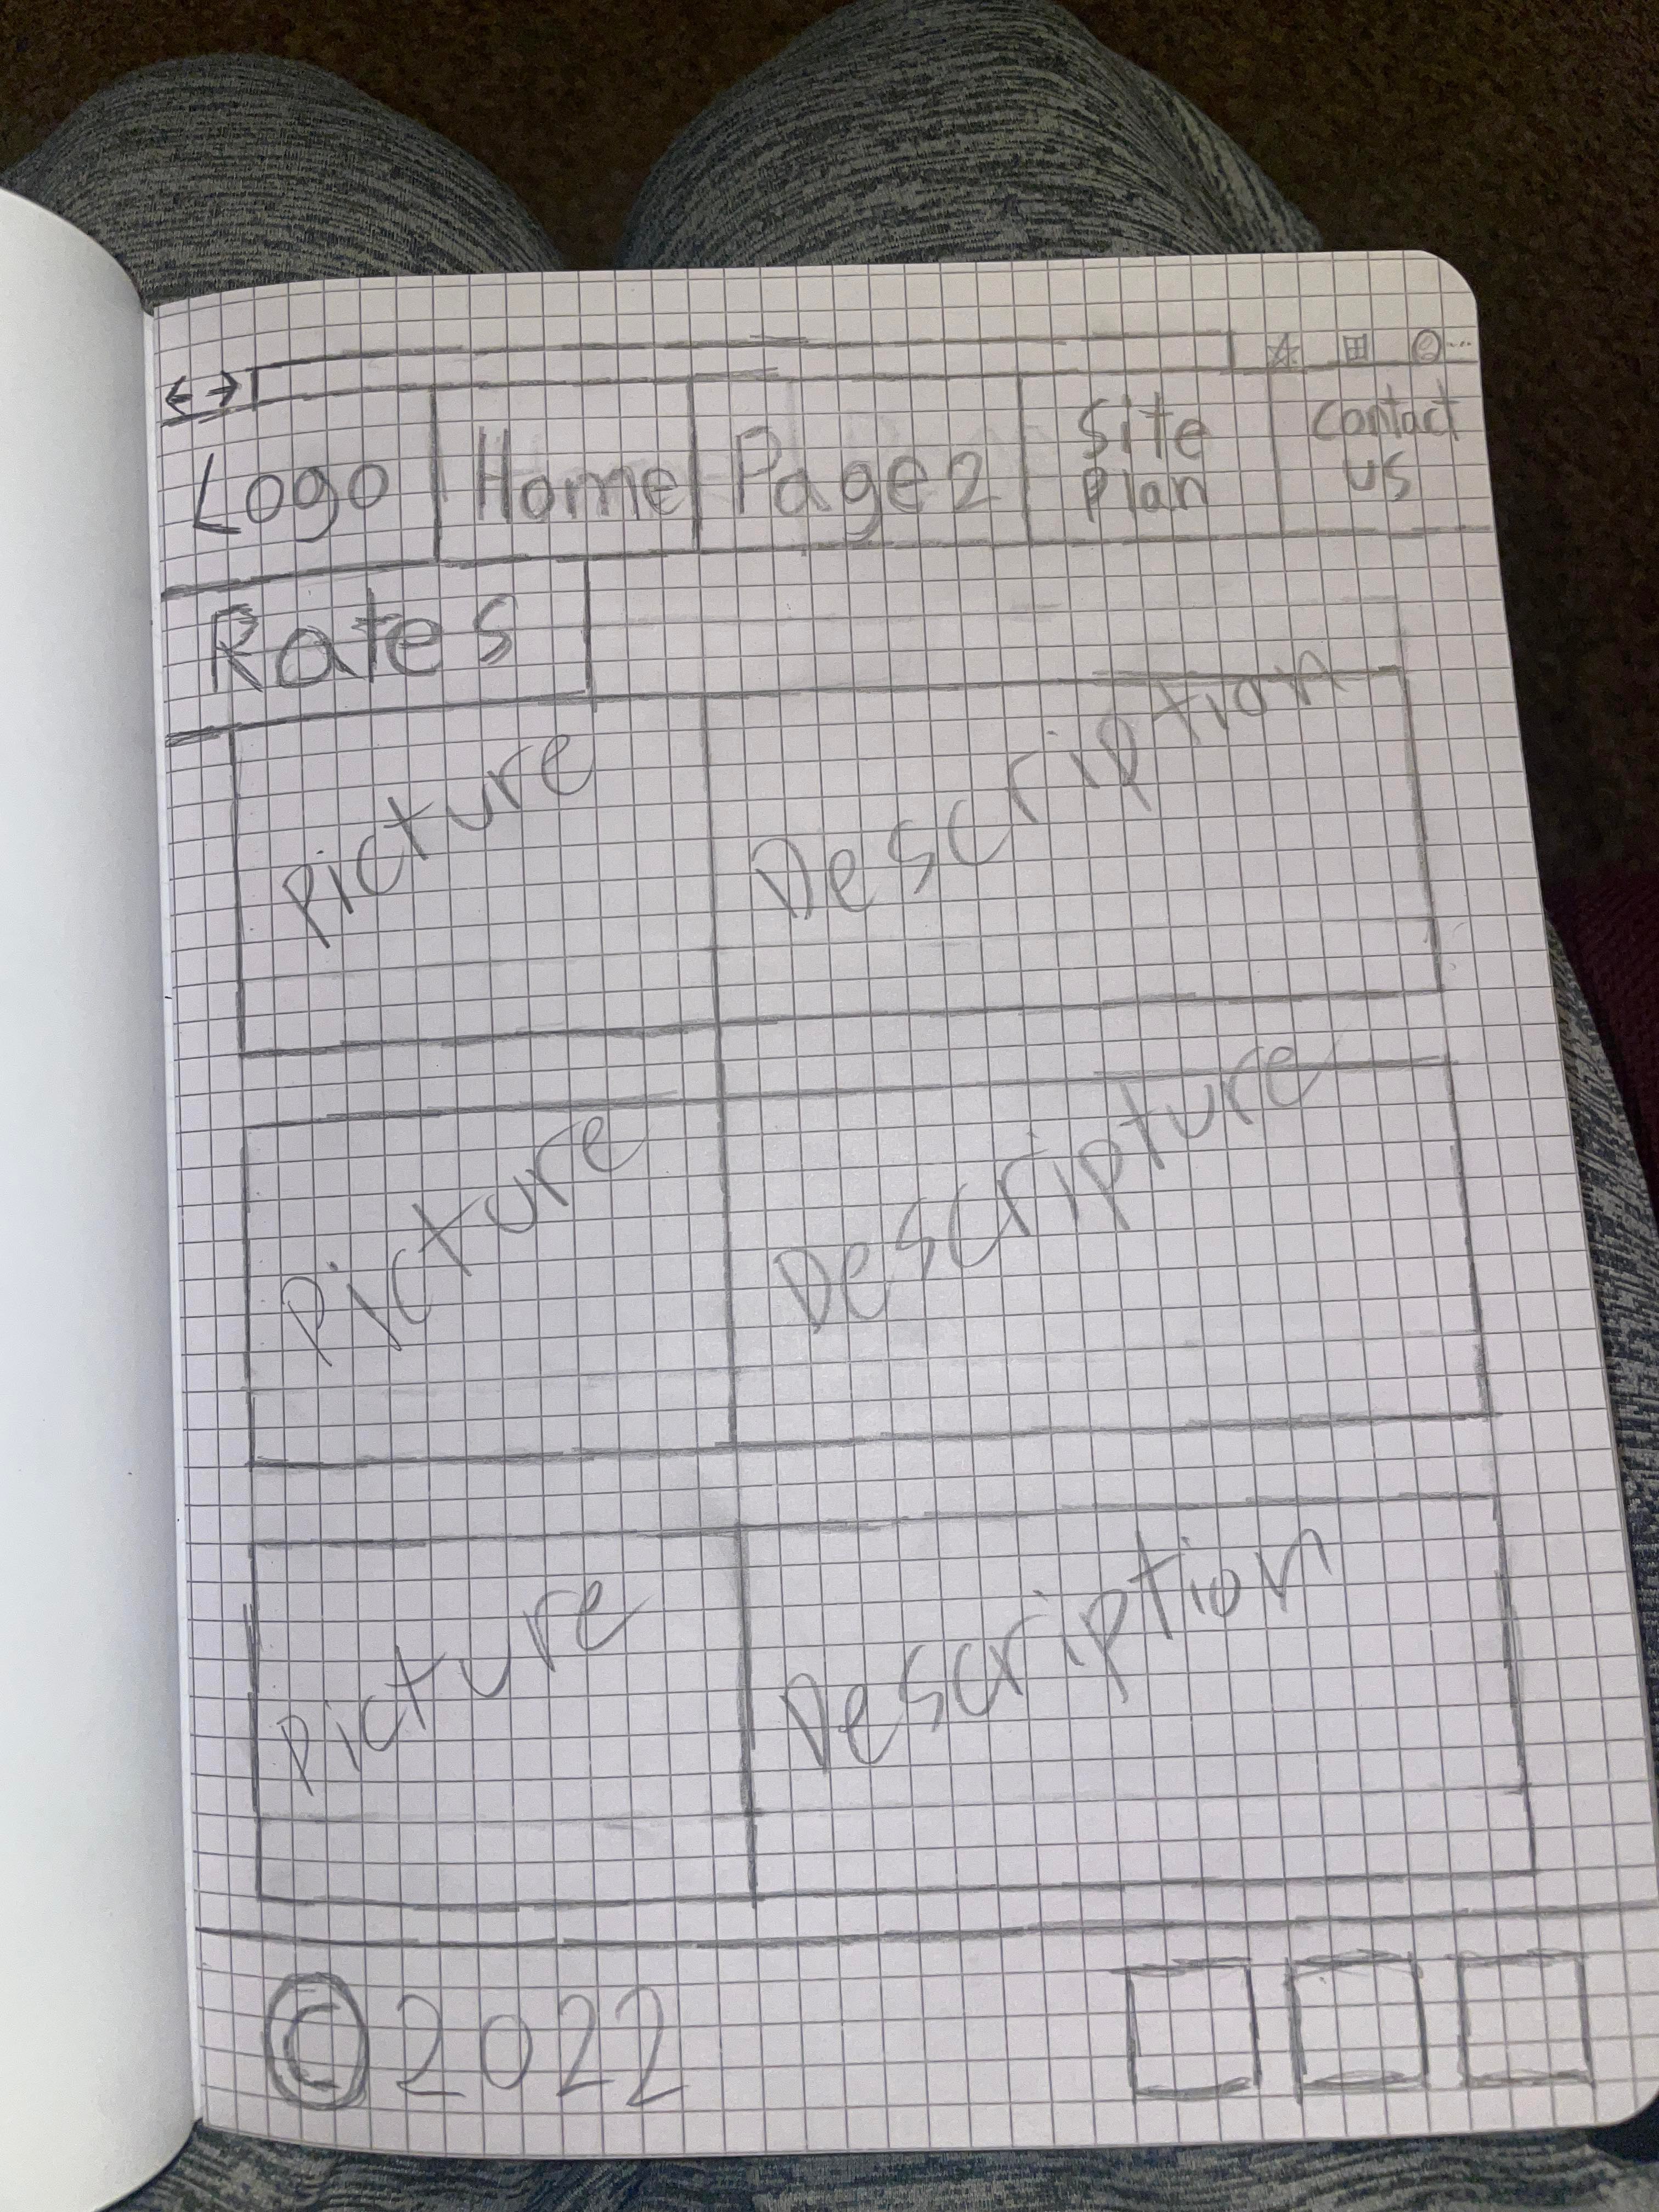 Logo Home Page 2 Site Plan Contact us
Rates
Picture Description
Picture Descripture
Picture Description
© 2022